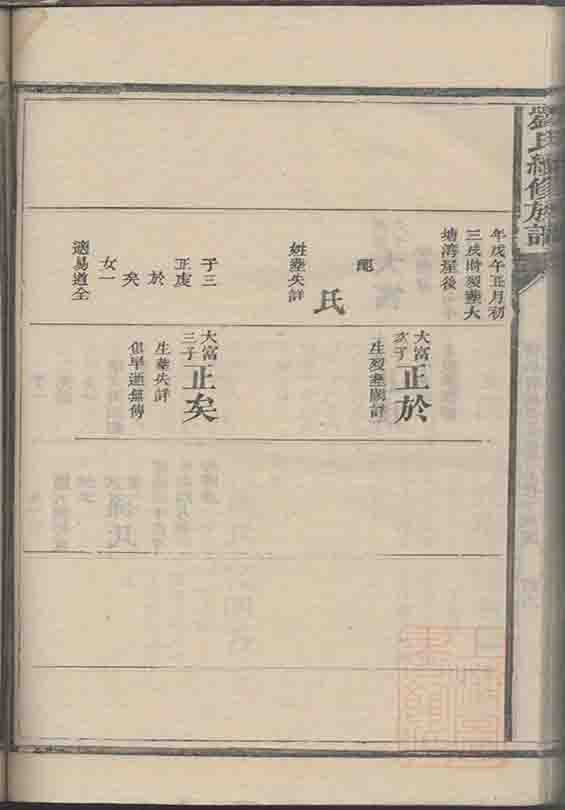 劉氏續修族譜
年戊午正月初
三戌時歿塟大
塘湾屋後
配
氏
姓塟失詳
子三
正虔
於
矣
女一
適易道全
大富
次子
正於
生歿塟闕詳
大富
三子
正矣
生塟失詳
俱早逝無傳